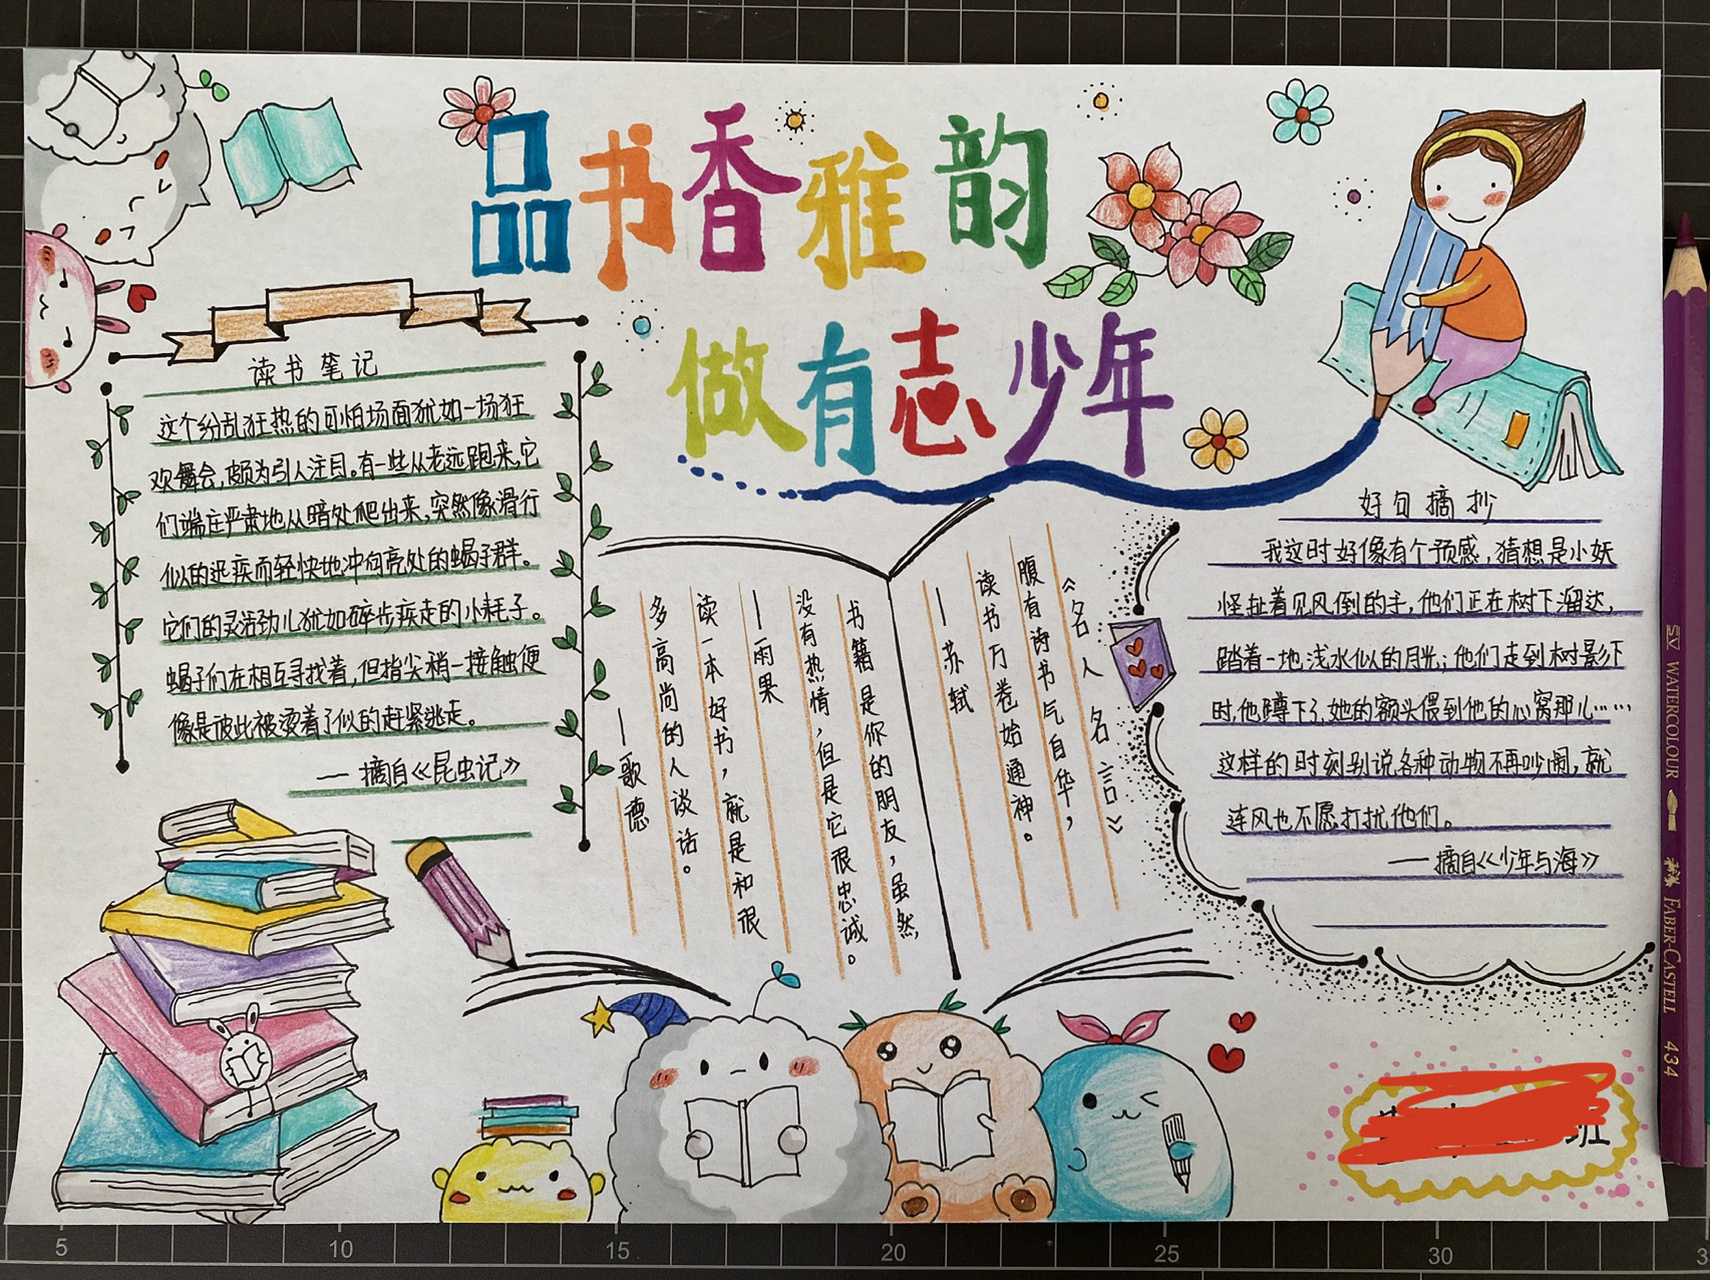 品书香雅韵
做有志少年
读书笔记
这个纷乱狂热的可怕场面犹如一场狂
欢舞会,颇为引人注目。有一些从老远跑来,它
们端庄严肃地从暗处爬出来,突然像滑行
似的迅疾而轻快地冲向亮处的蝎子群。
它们的灵活劲儿犹如碎步疾走的小耗子。
蝎子们在相互寻找着,但指尖稍一接触便
像是彼此被烫着了似的赶紧逃走。
— 摘自《昆虫记》
《名人名言》
腹有诗书气自华,
读书万卷始通神。
—苏轼
书籍是你的朋友,虽然,
没有热情,但是它很忠诚。
—雨果
读一本好书,就是和很
多高尚的人谈话。
—歌德
好句摘抄
我这时好像有个预感,猜想是小妖
怪扯着见风倒的手,他们正在树下溜达,
踏着一地浅水似的月光;他们走到树影下
时,他蹲下了,她的额头偎到他的心窝那儿……
这样的时刻别说各种动物不再吵闹,就
连风也不愿打扰他们。
——摘自《少年与海》
班
WATERCOLOUR
FABER-CASTELL
434
5
10
15
20
25
30